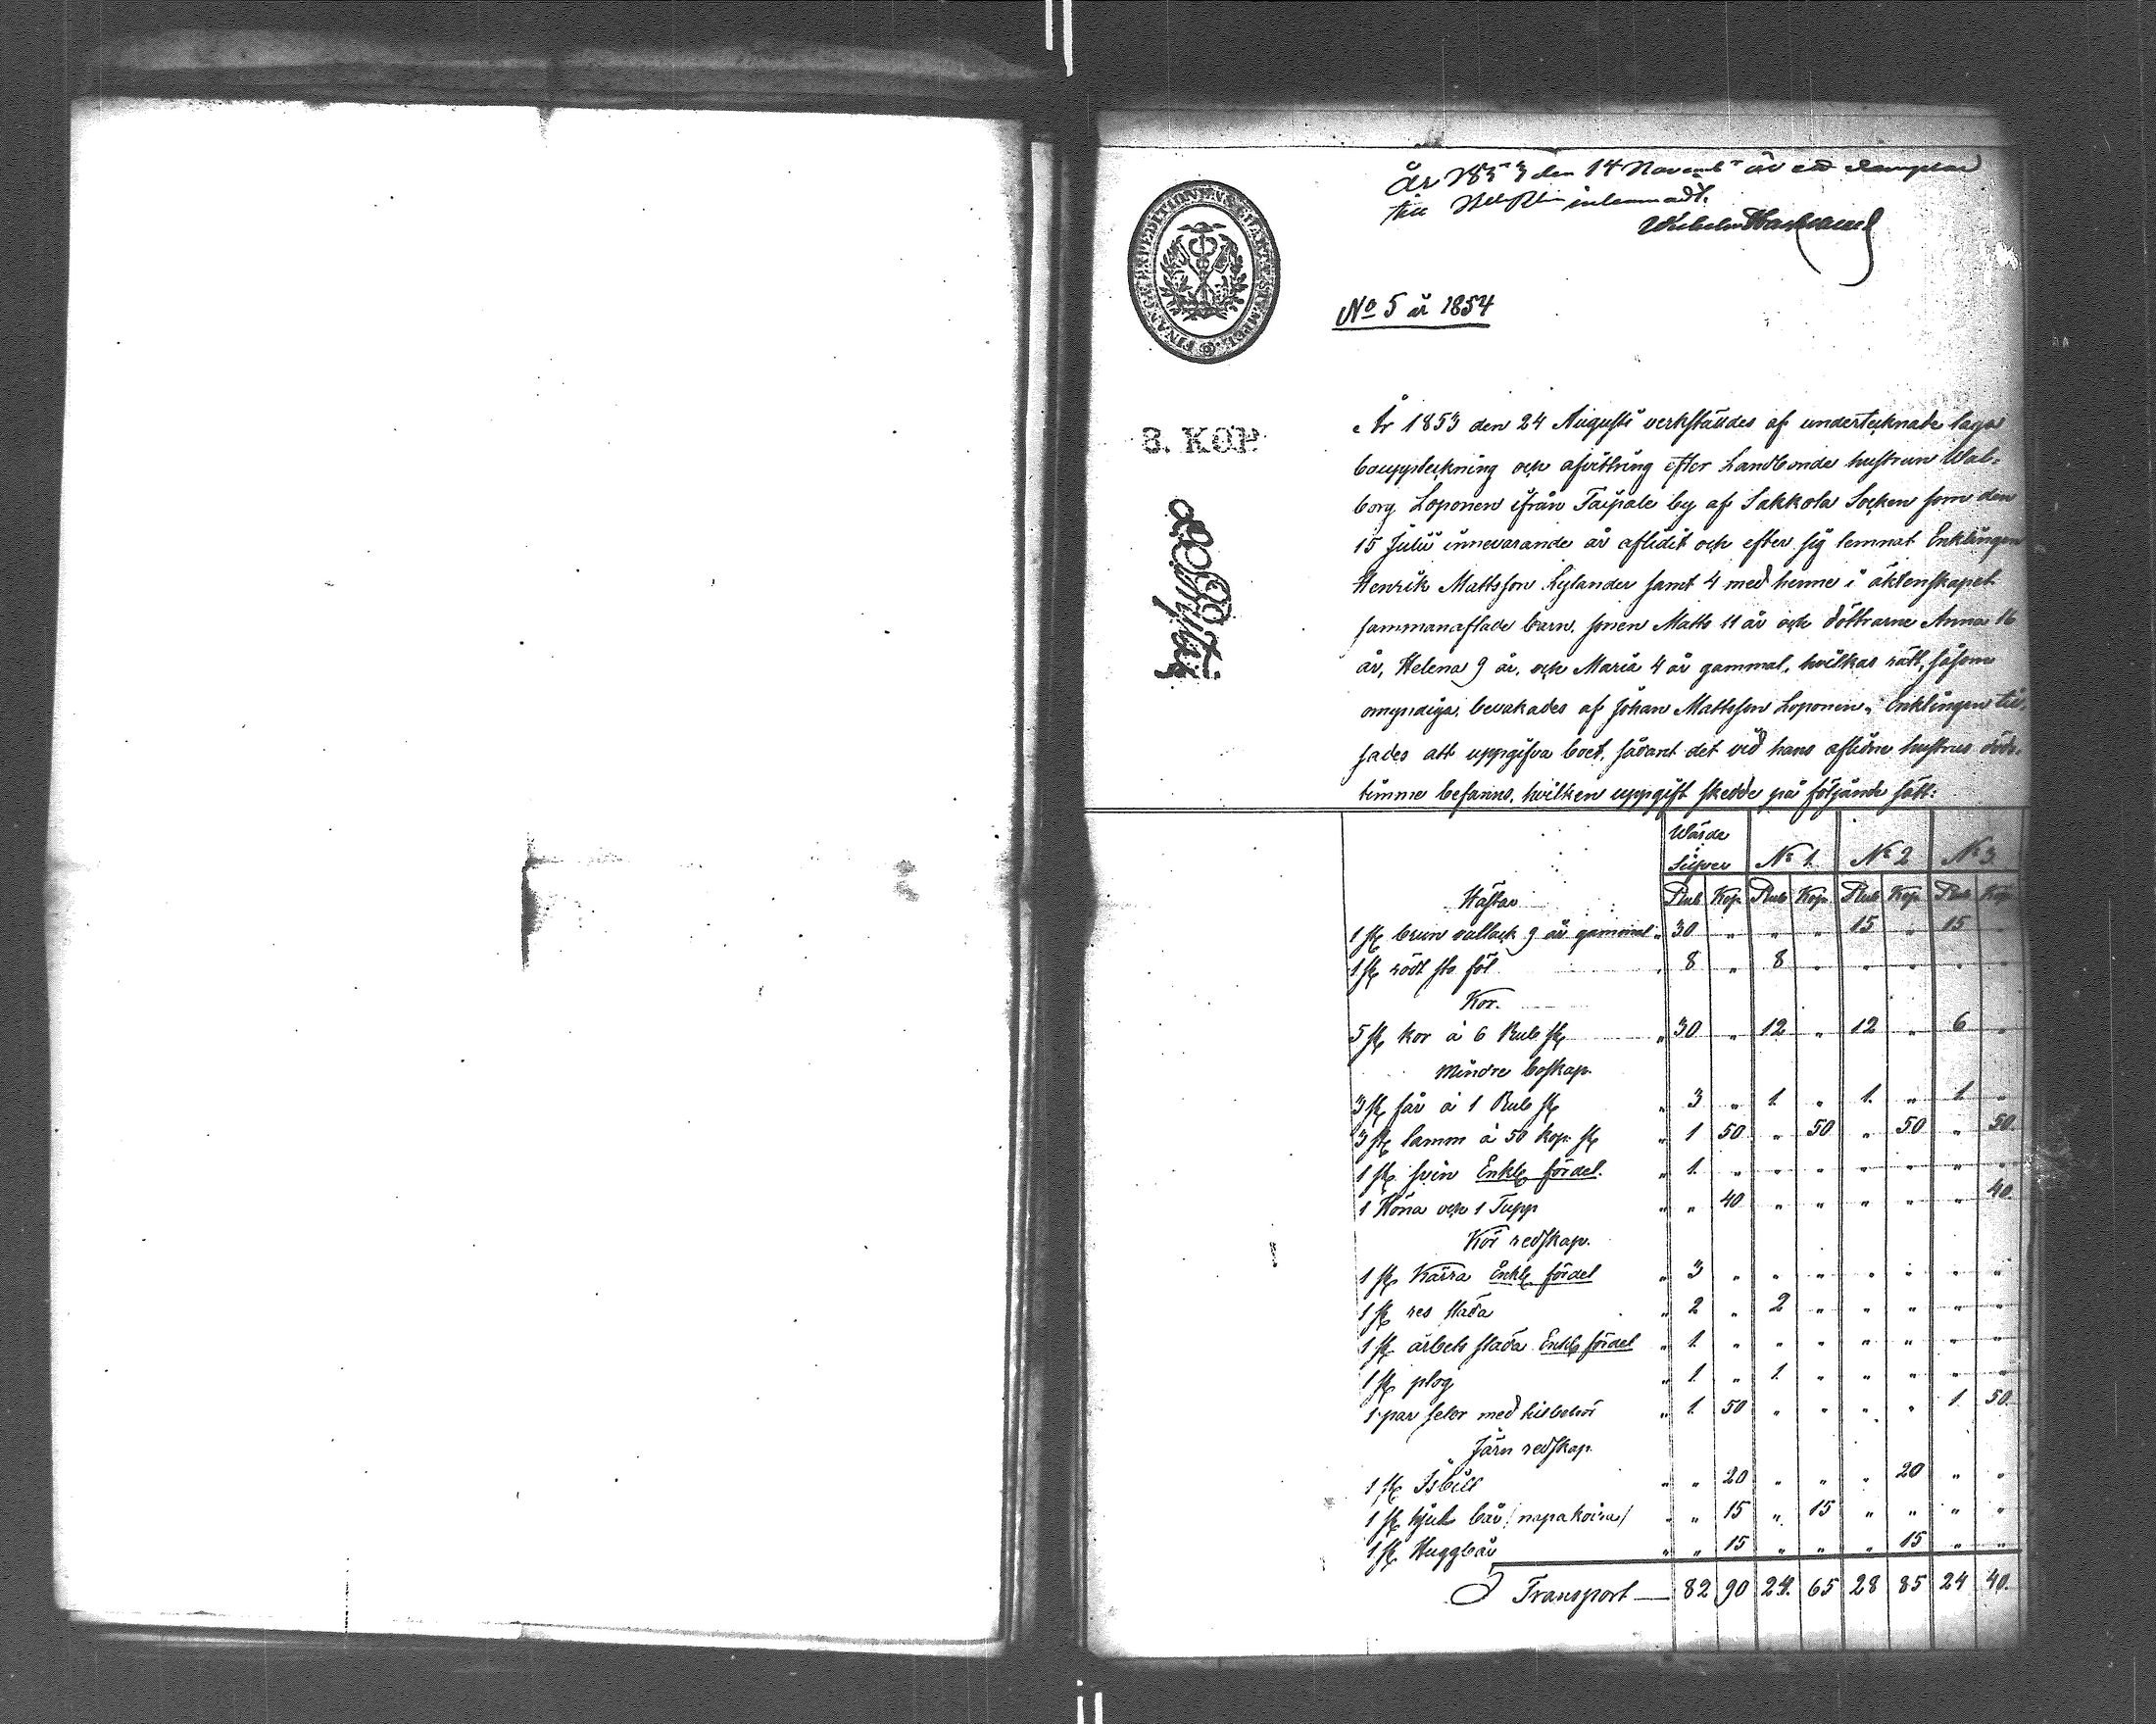 År 1853 den 14 Novemb. är ett exemplar
till inlemnadt.
Wilhelm
FINANCE EXPEDITIONENS CHARTÆ STEMPEL
No 5 år 1854
3. KOP.
År 1853 den 24 Augusti verkställdes af undertecknade laga
bouppteckning och afvittring efter Landbonde hustrun Wal-
borg Loponen ifrån Taipale by af Sakkola Socken som den
15 Julii innevarande år aflidit och efter sig lemnat Enklingen
Henrik Mattsson Kylander samt 4 med henne i äktenskapet
sammanaflade barn, sonen Matts 11 år och döttrarne Anna 16
år, Helena 9 år, och Maria 4 år gammal, hvilkas rätt, såsom
omyndiga, bevakades af Johan Mattsson Loponen. Enklingen till-
sades att uppgifva boet, sådant det vid hans aflidne hustrus döds-
timme befanns, hvilken uppgift skedde på följande sätt:
Wärde Silfver No 1. No 2 No 3
Hästar Rub Kop. Rub Kop. Rub Kop. Rub Kop
1 st brun vallack 9 år gammal " 30 " " " 15 " 15 "
1 st rödt sto föl " 8 " 8 " " " " "
Kor.
5 st kor à 6 Rub st " 30 " 12 " 12 " 6 "
Mindre boskap.
3 st får à 1 Rub st " 3 " 1. " 1. " 1. "
3 st lamm à 50 kop. st " 1 50 " 50 " 50 " 50.
1 st svin Enkl. fördel. " 1. " " " " " " "
1 Höna och 1 Tupp " " 40 " " " " " 40.
Kör redskap.
1 st Kärra Enkl. fördel " 3 " " " " " " "
1 st res släda " 2 " 2 " " " " "
1 st arbets släda Enkl. fördel " 1. " " " " " " "
1 st plog " 1 " 1. " " " " "
1 par selor med tillbehör " 1. 50 " " " " 1 50.
Järn redskap.
1 st Isbill " " 20 " " " 20 " "
1 st hjul bår /napakoira/ " " 15 " 15 " " " "
1 st Huggbår " " 15 " " " 15 " "
Transport — 82 90 24. 65 28 85 24 40.